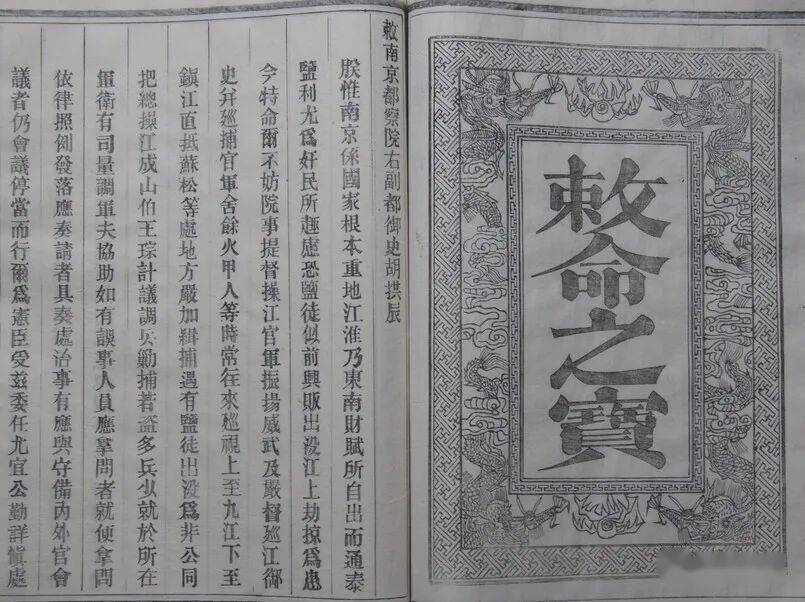 敕命之寶
敕南京都察院右副都御史胡拱辰
朕惟南京係國家根本重地江淮乃東南財賦所自出而通泰
鹽利尤爲奸民所趨慮恐鹽徒似前興販出没江上劫掠爲患
今特命爾不妨院事提督操江官軍振揚威武及嚴督廵江御
史并廵捕官軍舍餘火甲人等時常往來廵視上至九江下至
鎮江直抵蘇松等處地方嚴加緝捕遇有鹽徒出没爲非公同
把總操江成山伯王琮計議調兵勦捕著盗多兵少就於所在
軍衛有司量調軍夫協助如有誤事人員應拏問者就便拏問
依律照例發落應奏請者具奏處治事有應與守備内外官會
議者仍會議停當而行爾爲憲臣受兹委任尤宜公勤詳慎處